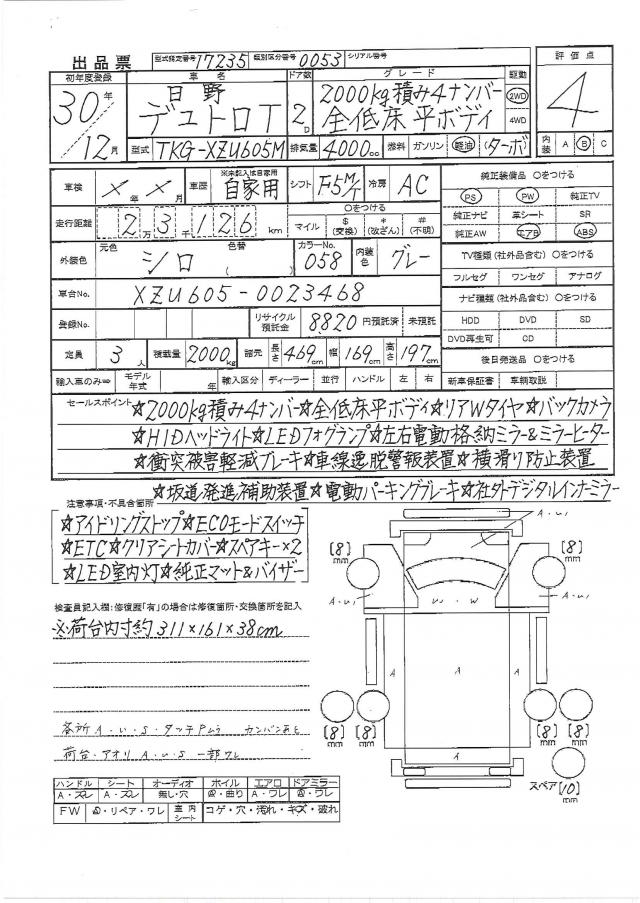 出品票 型式指定番号 17235 類別区分番号 0053 シリアル番号
初年度登録 車名 ドア数 グレード 駆動 評価点
30年 日野 2D 2000kg積み4ナンバー 2WD 4
デュトロT 全低床 平ボディ 4WD
12月 型式 TKG-XZU605M 排気量 4000cc 燃料 ガソリン 軽油 (ターボ) 内装 A B C
車検 X年X月 車歴 ※未記入は自家用 自家用 シフト F5M/T 冷房 AC 純正装備品 ○をつける
PS PW 純正TV
走行距離 2万3千126km ○をつける マイル $(交換) *(改ざん) #(不明) 純正ナビ 革シート SR
純正AW エアB ABS
外装色 元色 シロ 色替 ( ) カラーNo. 058 内装色 グレー TV種類(社外品含む) ○をつける
フルセグ ワンセグ アナログ
車台No. XZU605-0023468 ナビ種類(社外品含む) ○をつける
登録No. リサイクル預託金 8,820 円預託済 未預託 HDD DVD SD
DVD再生可 CD
定員 3人 積載量 2000kg 諸元 長さ 469cm 幅 169cm 高さ 197cm 後日発送品 ○をつける
輸入車のみ⇒ モデル年式 年 輸入区分 ディーラー 並行 ハンドル 左 右 新車保証書 車輌取説
セールスポイント ☆2000kg積み4ナンバー☆全低床平ボディ☆リアWタイヤ☆バックカメラ
☆HIDヘッドライト☆LEDフォグランプ☆左右電動格納ミラー&ミラーヒーター
☆衝突被害軽減ブレーキ☆車線逸脱警報装置☆横滑り防止装置
☆坂道発進補助装置☆電動パーキングブレーキ☆社外デジタルインナーミラー
注意事項・不具合箇所
☆アイドリングストップ☆ECOモードスイッチ
☆ETC☆クリアシートカバー☆スペアキー×2
☆LED室内灯☆純正マット&バイザー
検査員記入欄:修復歴「有」の場合は修復箇所・交換箇所を記入
※荷台内寸約311×161×38cm
各所 A・U・S・タッチPムラ カンバンあと
荷台・アオリ A・U・S 一部ワレ
ハンドル シート オーディオ ホイル エアロ ドアミラー
A・ズレ A・ズレ 無し・穴 A・曲り A・ワレ A・ワレ
FW A・リペア・ワレ 室内シート コゲ・穴・汚れ・キズ・破れ
A・U1
[8]mm [8]mm
A・U1 W・W A・U1
A A A
[8]mm [8]mm [8]mm [8]mm
A
スペア[10]mm